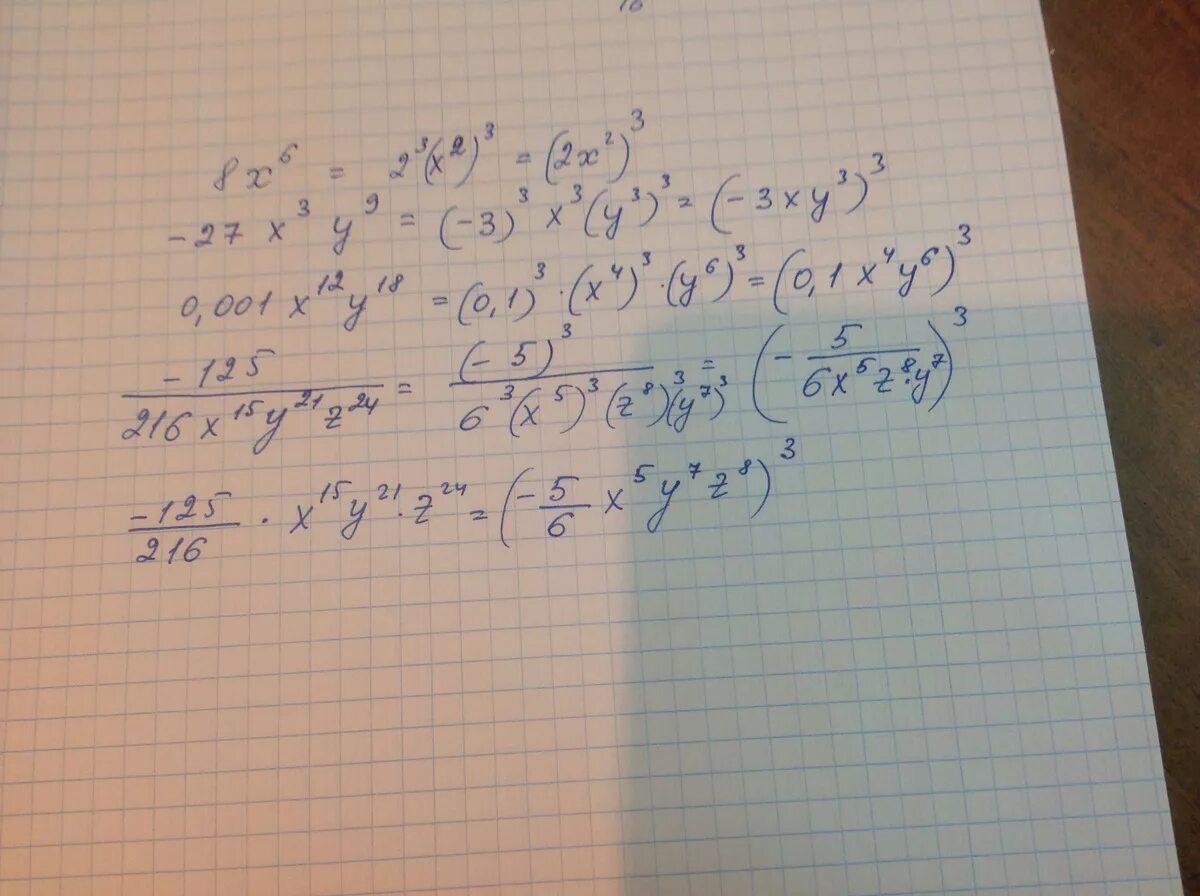 8x⁶ = 2³(x²)³ = (2x²)³
-27 x³ y⁹ = (-3)³ x³(y³)³ = (-3xy³)³
0,001 x¹²y¹⁸ = (0,1)³ · (x⁴)³ · (y⁶)³ = (0,1 x⁴y⁶)³
-125 / 216x¹⁵y²¹z²⁴ = (-5)³ / 6³(x⁵)³(z⁸)³(y⁷)³ = (- 5 / 6x⁵z⁸·y⁷)³
-125 / 216 · x¹⁵y²¹·z²⁴ = (-5/6 x⁵y⁷z⁸)³